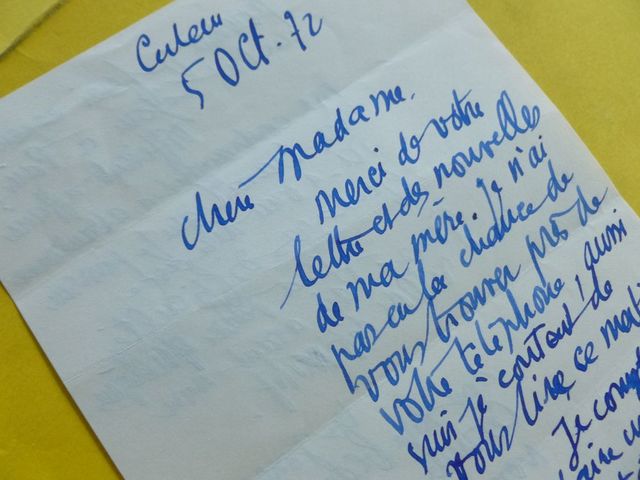 5 Oct. 72
Chère Madame.
Merci de votre
lettre et des nouvelles
de ma mère. Je n'ai
pas eu la chance de
vous trouver près de
votre téléphone, aussi
suis-je content de
vous lire ce
Je